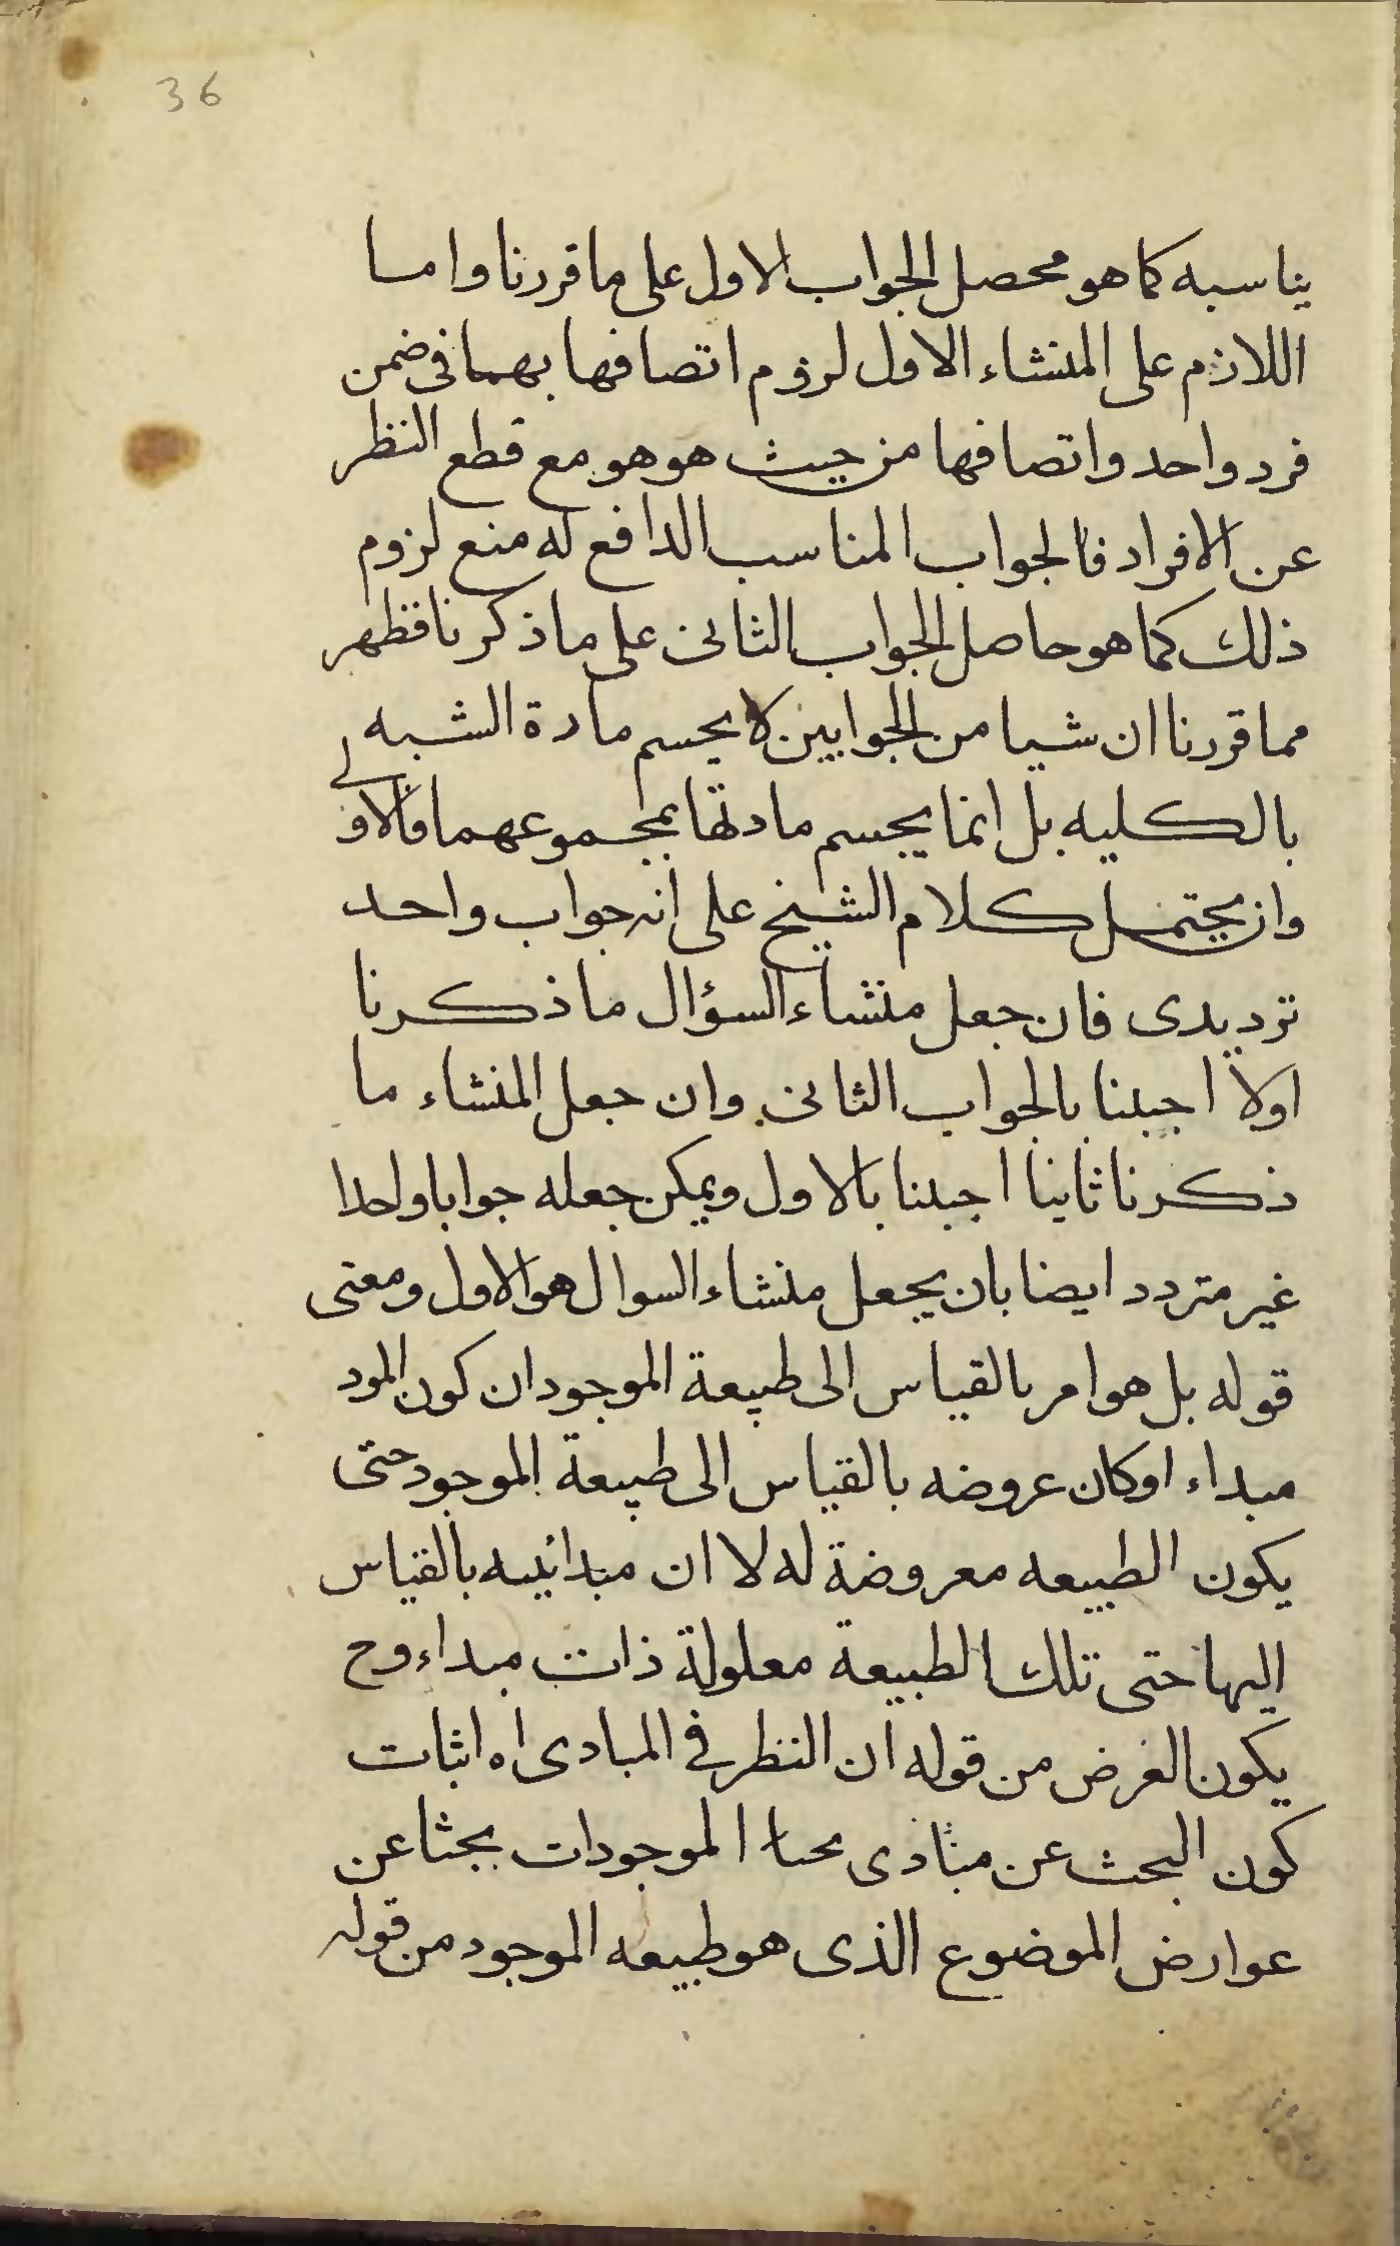 36
يناسبه كما هو محصل الجواب الاول على ما قررنا واما
اللازم على المنشاء الاول لزوم اتصافها بهما فى ضمن
فرد واحد واتصافها من حيث هو هو مع قطع النظر
عن الافراد فالجواب المناسب الدافع له منع لزوم
ذلك كما هو حاصل الجواب الثانى على ما ذكرنا فظهر
مما قررنا ان شيا من الجوابين لا يحسم مادة الشبه
بالكليه بل انما يحسم مادتها بمجموعهما فالاولى
وان يحتمل كلام الشيخ على انه جواب واحد
ترديدى فان جعل منشاء السؤال ما ذكرنا
اولا اجبنا بالجواب الثانى وان جعل المنشاء ما
ذكرنا ثانيا اجبنا بالاول ويمكن جعله جوابا واحدا
غير متردد ايضا بان يجعل منشاء السوال هو الاول ومعنى
قوله بل هو امر بالقياس الى طبيعة الموجود ان كون المود
مبداء او كان عروضه بالقياس الى طبيعة الموجود حتى
يكون الطبيعه معروضة له لا ان مبدائيه بالقياس
اليها حتى تلك الطبيعة معلولة ذات مبداء وح
يكون الغرض من قوله ان النظر في المبادى اه اثبات
كون البحث عن مبادى الموجودات بحثا عن
عوارض الموضوع الذى هو طبيعه الموجود من قوله